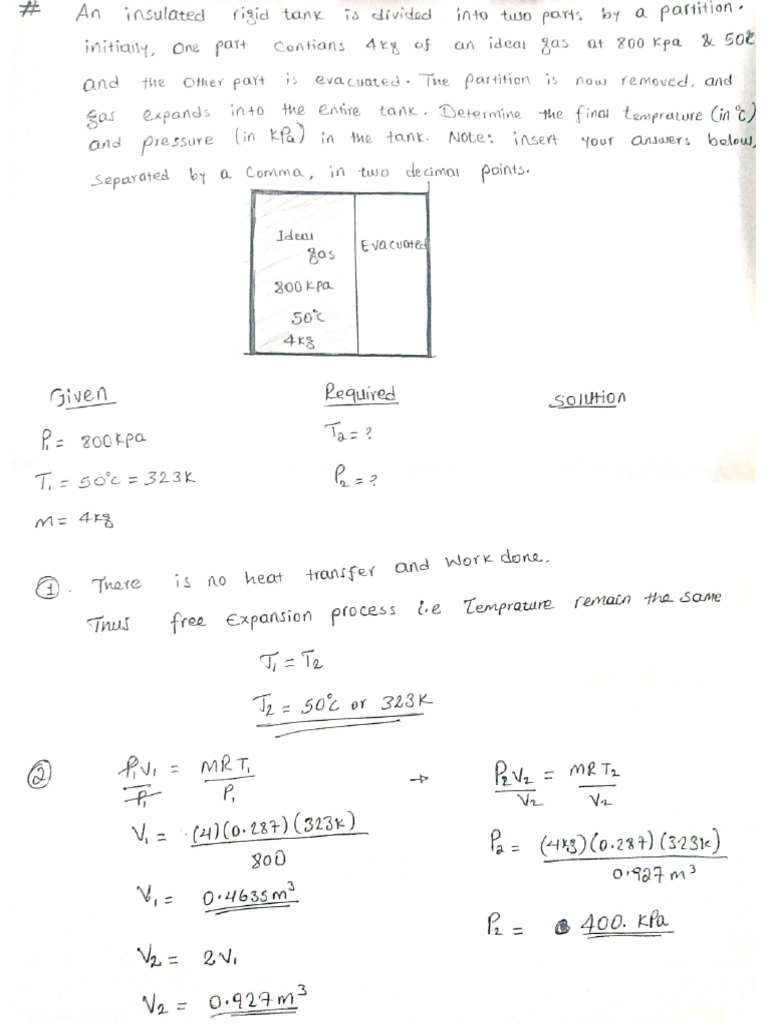 # An insulated rigid tank is divided into two parts by a partition.
initially, One part Contians 4kg of an ideal gas at 800 Kpa & 50℃
and the other part is evacuated. The partition is now removed, and
gas expands into the entire tank. Determine the final temprature (in ℃)
and pressure (in KPa) in the tank. Note: insert your answers below,
separated by a Comma, in two decimal points.
Ideal gas
Evacuated
800 Kpa
50℃
4kg
Given Required Solution
P₁ = 800kpa T₂ = ?
T₁ = 50℃ = 323K P₂ = ?
M = 4kg
①. There is no heat transfer and Work done.
Thus free Expansion process i.e Temprature remain the same
T₁ = T₂
T₂ = 50℃ or 323K
② P₁V₁/P₁ = MRT₁/P₁ → P₂V₂/V₂ = MRT₂/V₂
V₁ = (4)(0.287)(323K)/800 P₂ = (4kg)(0.287)(323K)/0.927m³
V₁ = 0.4635m³ P₂ = 400. KPa
V₂ = 2V₁
V₂ = 0.927m³